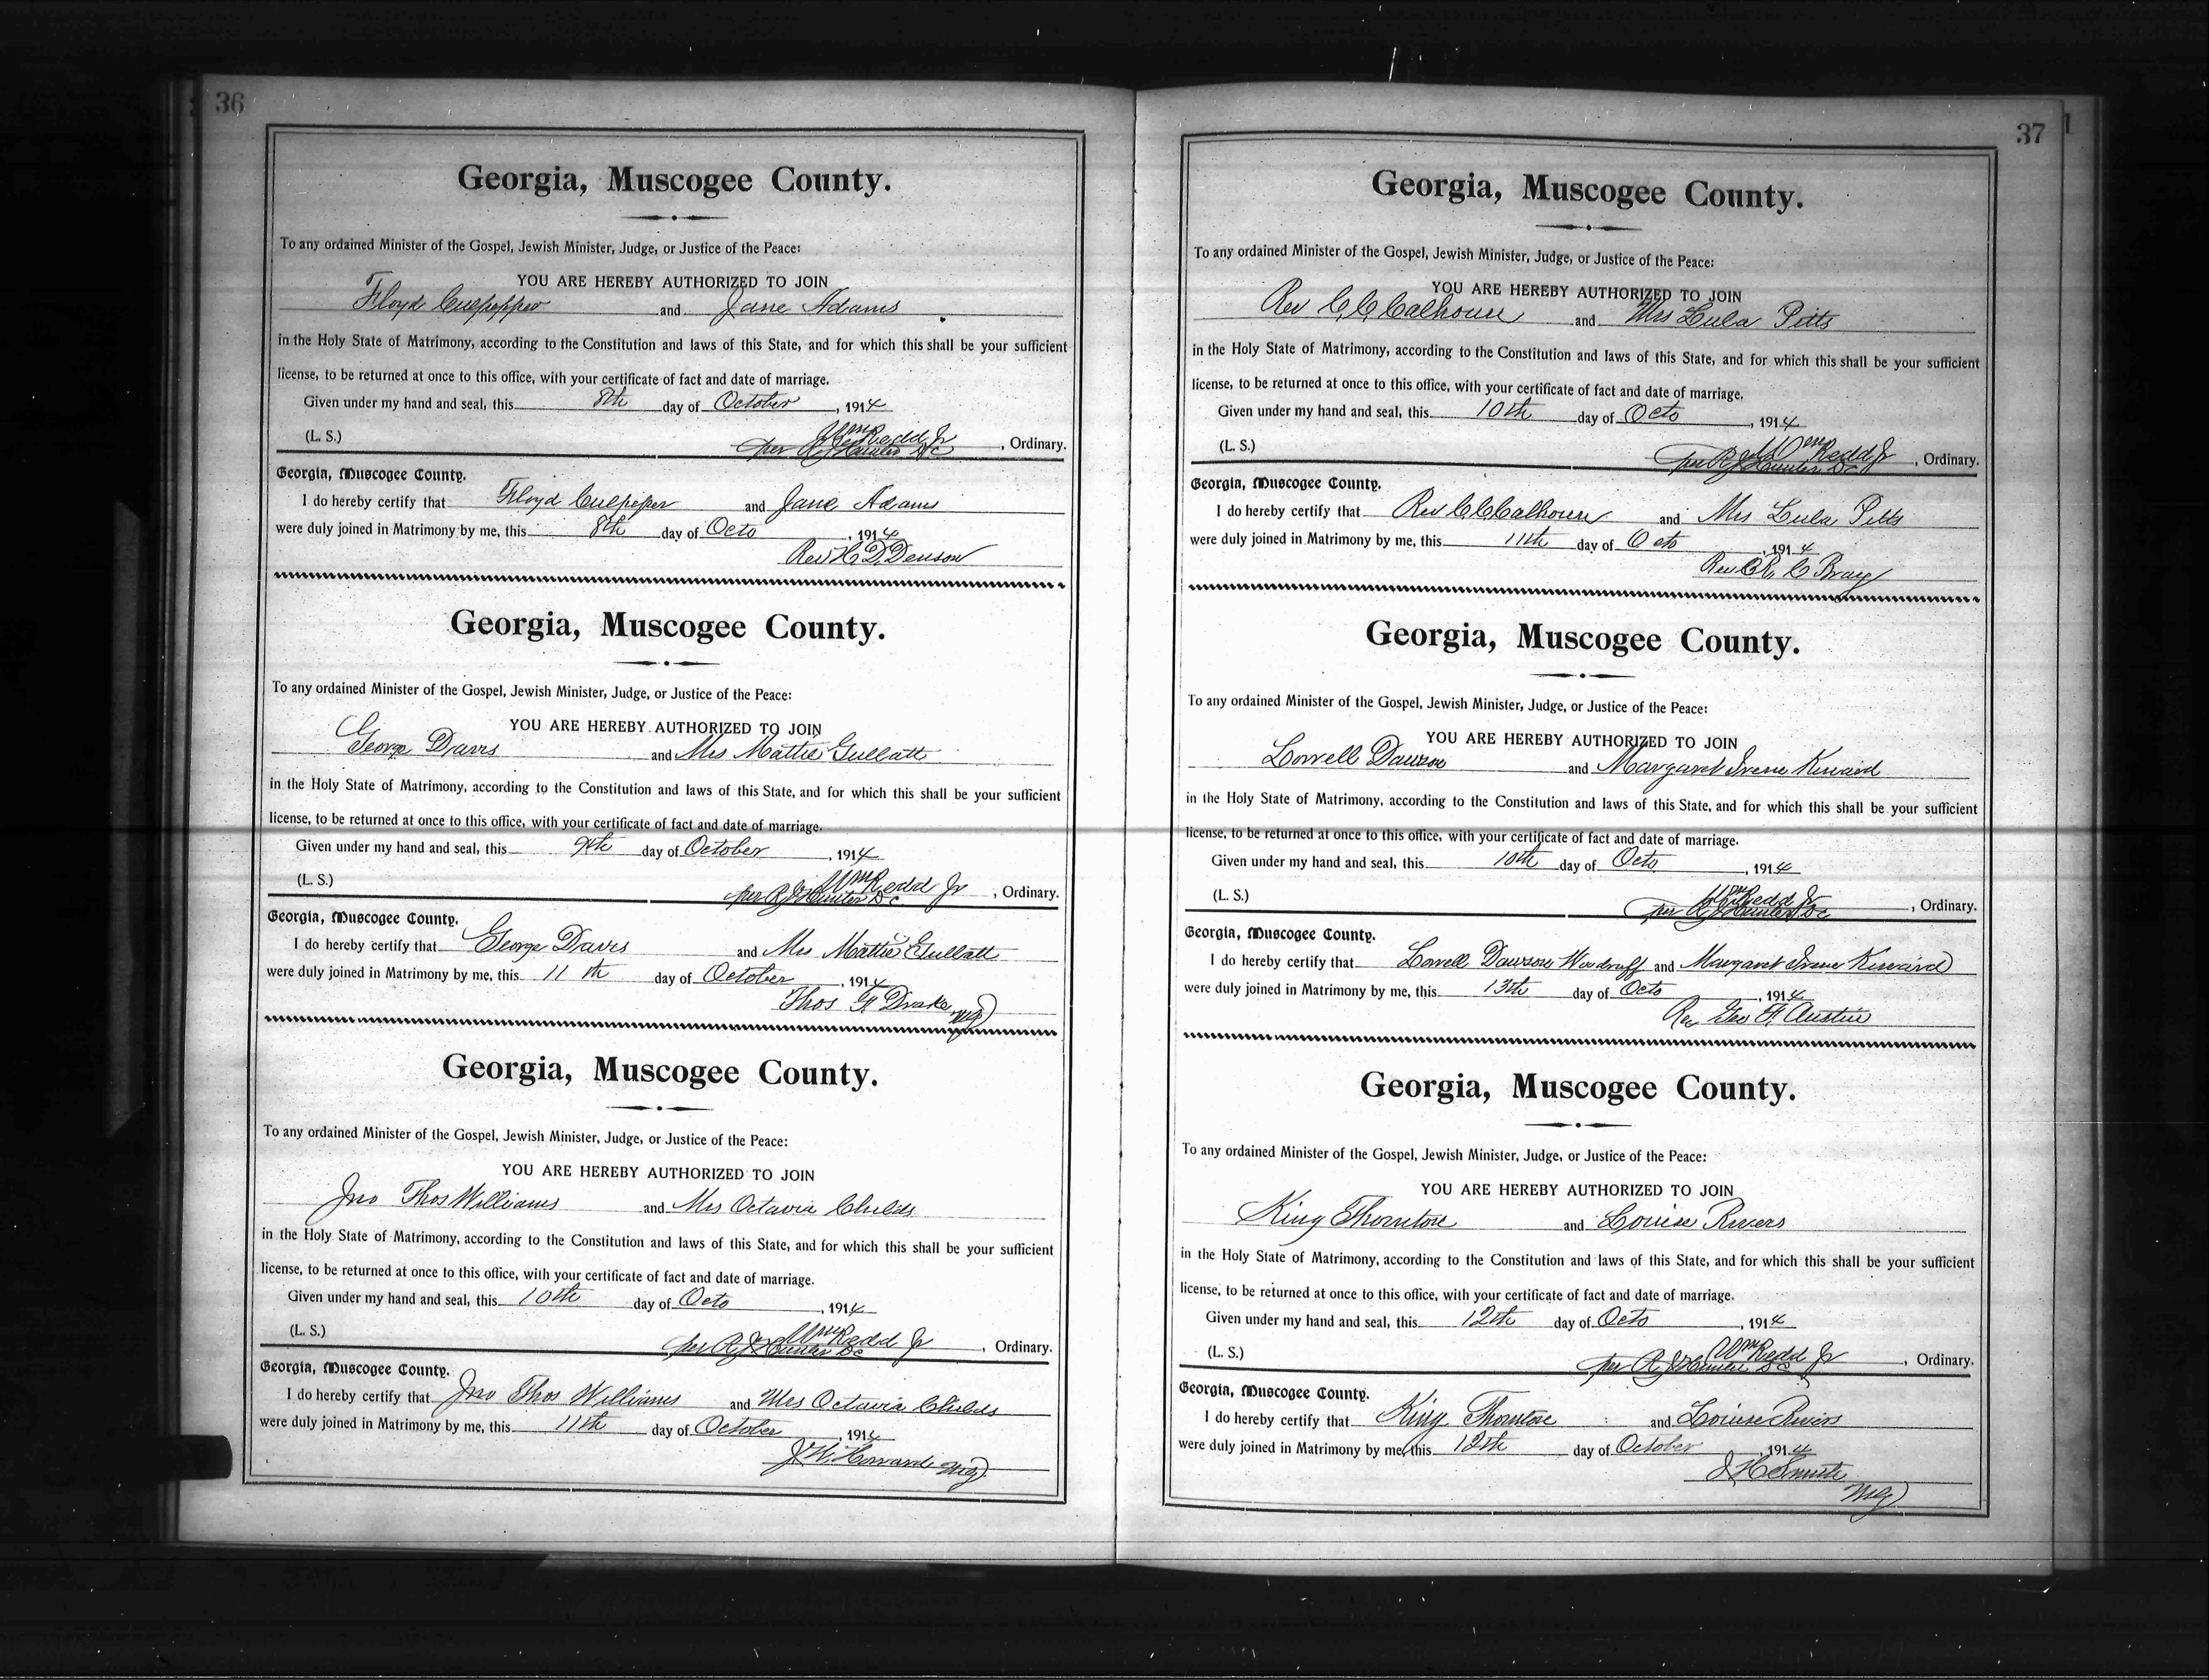 36
Georgia, Muscogee County.
To any ordained Minister of the Gospel, Jewish Minister, Judge, or Justice of the Peace:
YOU ARE HEREBY AUTHORIZED TO JOIN
Floyd Culpepper and Jane Adams
in the Holy State of Matrimony, according to the Constitution and laws of this State, and for which this shall be your sufficient
license, to be returned at once to this office, with your certificate of fact and date of marriage.
Given under my hand and seal, this 8th day of October, 1914
Wm Redd Jr
(L. S.) per R J Hunter DC, Ordinary.
Georgia, Muscogee County.
I do hereby certify that Floyd Culpepper and Jane Adams
were duly joined in Matrimony by me, this 8th day of Octo, 1914
Rev H. D. Denson
Georgia, Muscogee County.
To any ordained Minister of the Gospel, Jewish Minister, Judge, or Justice of the Peace:
YOU ARE HEREBY AUTHORIZED TO JOIN
George Davis and Mrs Mattie Gullatt
in the Holy State of Matrimony, according to the Constitution and laws of this State, and for which this shall be your sufficient
license, to be returned at once to this office, with your certificate of fact and date of marriage.
Given under my hand and seal, this 9th day of October, 1914
Wm Redd Jr
(L. S.) per R J Hunter DC, Ordinary.
Georgia, Muscogee County.
I do hereby certify that George Davis and Mrs Mattie Gullatt
were duly joined in Matrimony by me, this 11th day of October, 1914
Thos F. Drake MG
Georgia, Muscogee County.
To any ordained Minister of the Gospel, Jewish Minister, Judge, or Justice of the Peace:
YOU ARE HEREBY AUTHORIZED TO JOIN
Jno Thos Williams and Mrs Octavia Childs
in the Holy State of Matrimony, according to the Constitution and laws of this State, and for which this shall be your sufficient
license, to be returned at once to this office, with your certificate of fact and date of marriage.
Given under my hand and seal, this 10th day of Octo, 1914
Wm Redd Jr
(L. S.) per R J Hunter DC, Ordinary.
Georgia, Muscogee County.
I do hereby certify that Jno Thos Williams and Mrs Octavia Childs
were duly joined in Matrimony by me, this 11th day of October, 1914
J. H. Howard MG
37
Georgia, Muscogee County.
To any ordained Minister of the Gospel, Jewish Minister, Judge, or Justice of the Peace:
YOU ARE HEREBY AUTHORIZED TO JOIN
Rev C. C. Calhoun and Mrs Lula Pitts
in the Holy State of Matrimony, according to the Constitution and laws of this State, and for which this shall be your sufficient
license, to be returned at once to this office, with your certificate of fact and date of marriage.
Given under my hand and seal, this 10th day of Octo, 1914
Wm Redd Jr
(L. S.) per R J Hunter DC, Ordinary.
Georgia, Muscogee County.
I do hereby certify that Rev C C Calhoun and Mrs Lula Pitts
were duly joined in Matrimony by me, this 11th day of Octo, 1914
Rev C Bray
Georgia, Muscogee County.
To any ordained Minister of the Gospel, Jewish Minister, Judge, or Justice of the Peace:
YOU ARE HEREBY AUTHORIZED TO JOIN
Lowell Dawson and Margaret Irene Kinard
in the Holy State of Matrimony, according to the Constitution and laws of this State, and for which this shall be your sufficient
license, to be returned at once to this office, with your certificate of fact and date of marriage.
Given under my hand and seal, this 10th day of Octo, 1914
Wm Redd Jr
(L. S.) per R J Hunter DC, Ordinary.
Georgia, Muscogee County.
I do hereby certify that Lowell Dawson Woodruff and Margaret Irene Kinard
were duly joined in Matrimony by me, this 13th day of Octo, 1914
Rev Geo F. Austin
Georgia, Muscogee County.
To any ordained Minister of the Gospel, Jewish Minister, Judge, or Justice of the Peace:
YOU ARE HEREBY AUTHORIZED TO JOIN
King Thornton and Louise Rivers
in the Holy State of Matrimony, according to the Constitution and laws of this State, and for which this shall be your sufficient
license, to be returned at once to this office, with your certificate of fact and date of marriage.
Given under my hand and seal, this 12th day of Octo, 1914
Wm Redd Jr
(L. S.) per R J Hunter DC, Ordinary.
Georgia, Muscogee County.
I do hereby certify that King Thornton and Louise Rivers
were duly joined in Matrimony by me, this 12th day of October, 1914
J H Smith
MG